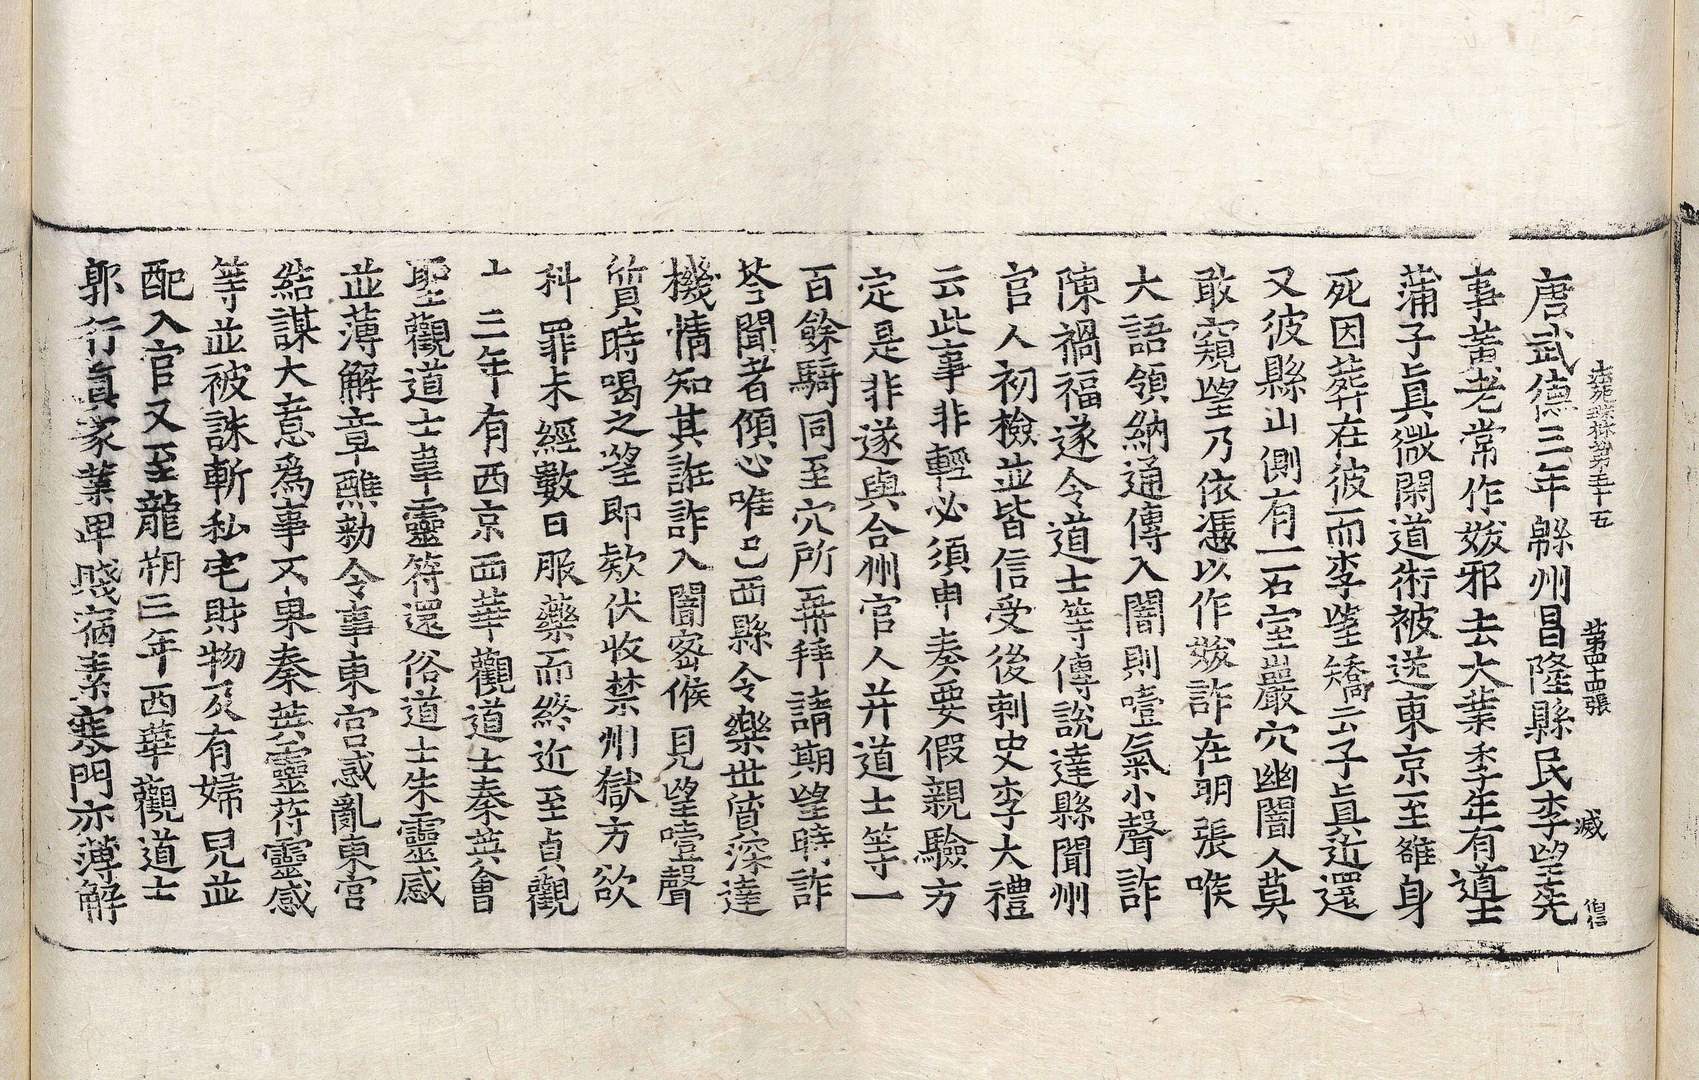 法苑珠林卷第五十五 第四十四張 滅 伯信
唐武德三年緜州昌隆縣民李望先
事黃老常作妭邪去大業季年有道士
蒲子眞微閑道術被送東京至雒身
死因葬在彼而李望矯云子眞近還
又彼縣山側有一石室巖穴幽闇人莫
敢窺望乃依憑以作妭詐在明張喉
大語領納通傳入闇則噎氣小聲詐
陳禍福遂令道士等傳說達縣聞州
官人初檢並皆信受後刺史李大禮
云此事非輕必須申奏要假親驗方
定是非遂與合州官人并道士等一
百餘騎同至穴所再拜請期望時詐
荅聞者傾心唯巴西縣令樂世質深達
機情知其詃詐入闇密候見望噎聲
質時喝之望即欵伏收禁州獄方欲
科罪未經數日服藥而終近至貞觀
十三年有西京西華觀道士秦英會
聖觀道士韋靈符還俗道士朱靈感
並薄解章醮勑令事東宮惑亂東宮
結謀大意爲事不果秦英靈符靈感
等並被誅斬私宅財物及有婦兒並
配入官又至龍朔三年西華觀道士
郭行眞家業卑賤宿素寒門亦薄解